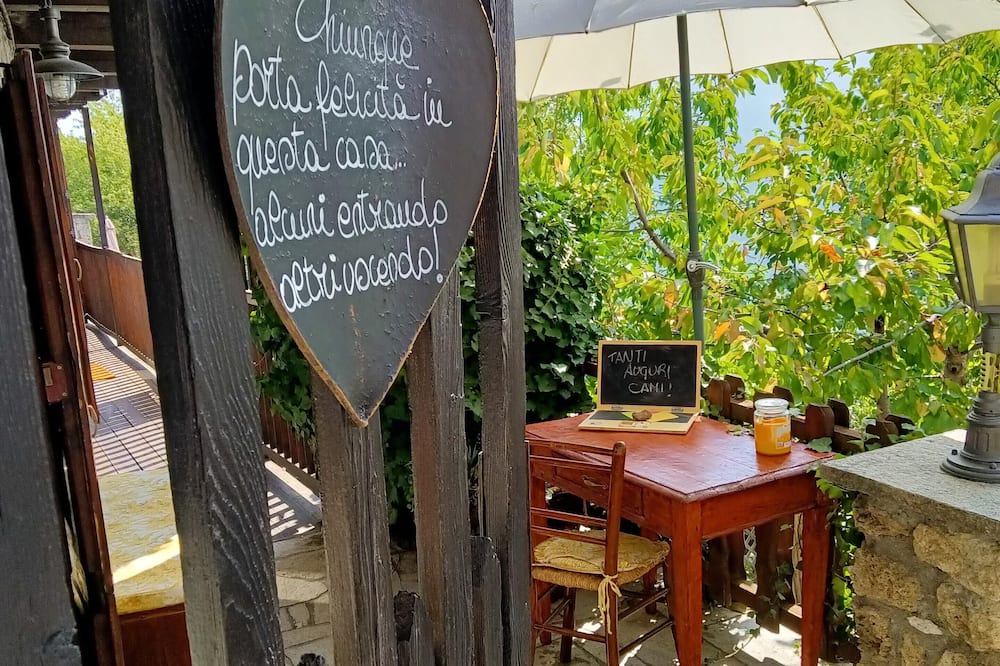 Chiunque
porta felicità in
questa casa...
alcuni entrando
altri uscendo!
TANTI
AUGURI
CAMI!